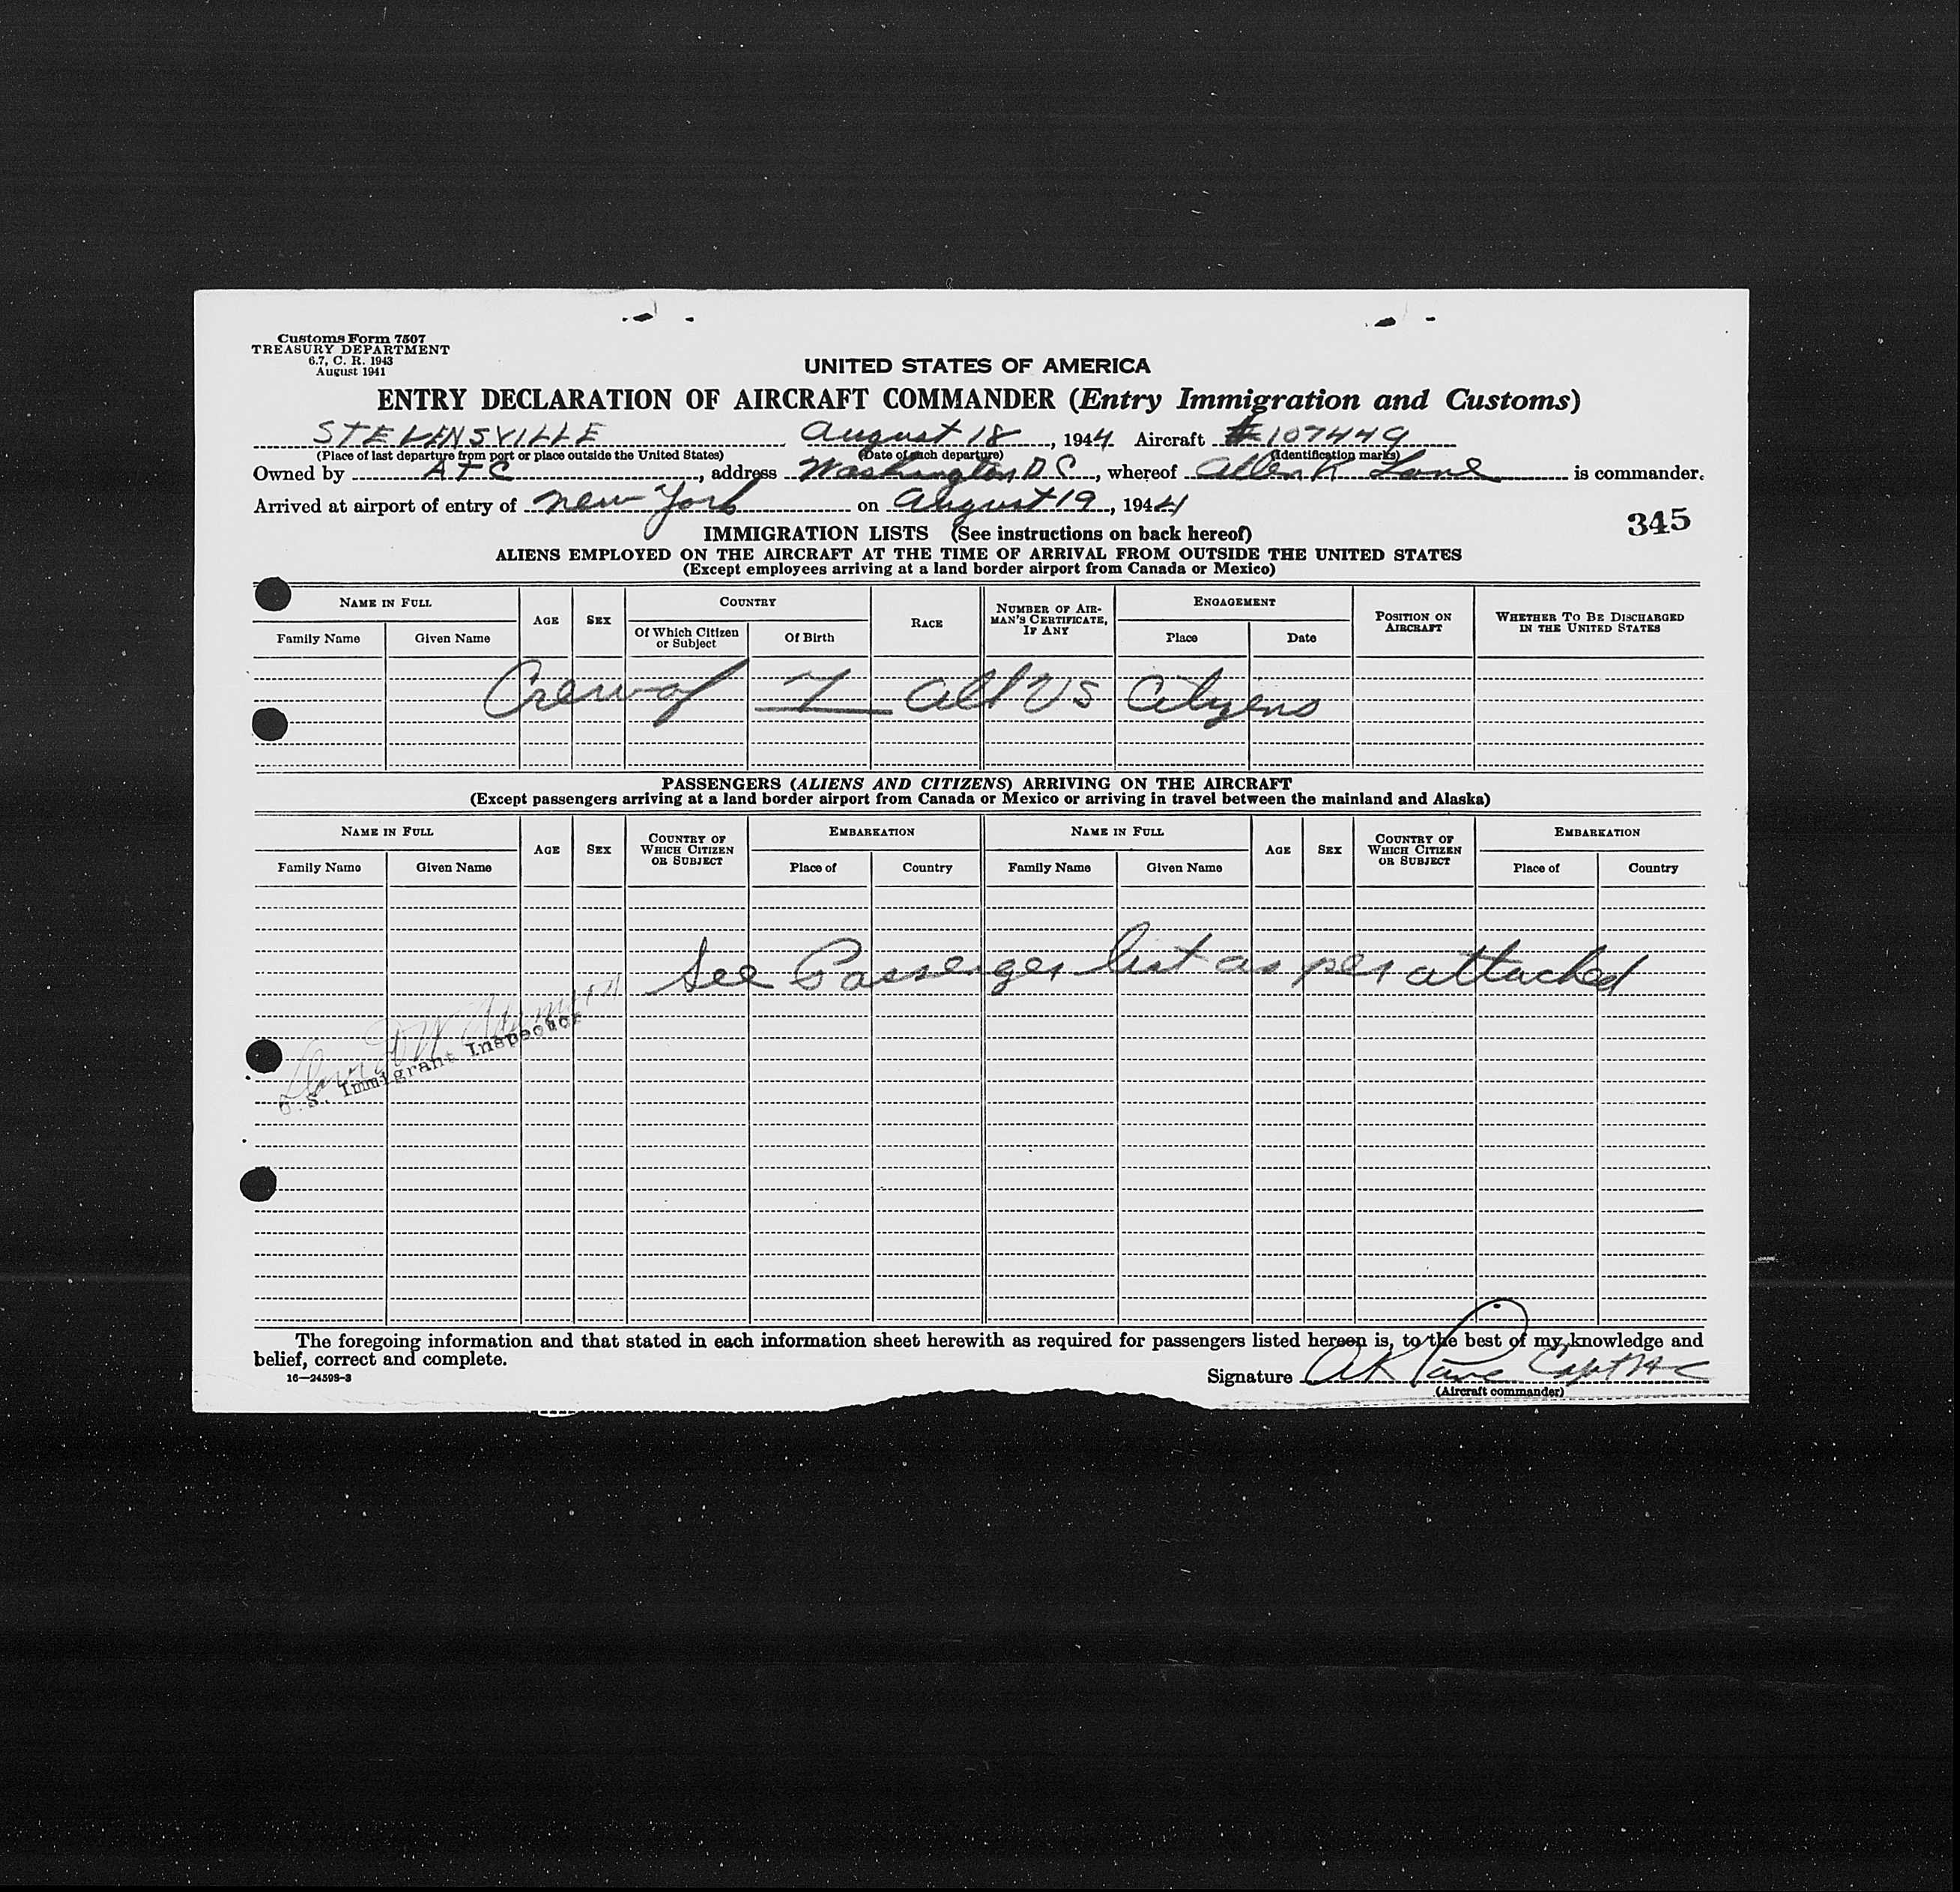 Customs Form 7507
TREASURY DEPARTMENT
6.7, C. R. 1943
August 1941
UNITED STATES OF AMERICA
ENTRY DECLARATION OF AIRCRAFT COMMANDER (Entry Immigration and Customs)
STEVENSVILLE August 18, 1944 Aircraft #107449
(Place of last departure from port or place outside the United States) (Date of such departure) (Identification marks)
Owned by ATC, address Washington D C, whereof Allen K Lane is commander.
Arrived at airport of entry of New York on August 19, 1944
345
IMMIGRATION LISTS (See instructions on back hereof)
ALIENS EMPLOYED ON THE AIRCRAFT AT THE TIME OF ARRIVAL FROM OUTSIDE THE UNITED STATES
(Except employees arriving at a land border airport from Canada or Mexico)
NAME IN FULL AGE SEX COUNTRY RACE NUMBER OF AIRMAN'S CERTIFICATE, IF ANY ENGAGEMENT POSITION ON AIRCRAFT WHETHER TO BE DISCHARGED IN THE UNITED STATES
Family Name Given Name Of Which Citizen or Subject Of Birth Place Date
Crew of 7 all US Citizens
PASSENGERS (ALIENS AND CITIZENS) ARRIVING ON THE AIRCRAFT
(Except passengers arriving at a land border airport from Canada or Mexico or arriving in travel between the mainland and Alaska)
NAME IN FULL AGE SEX COUNTRY OF WHICH CITIZEN OR SUBJECT EMBARKATION NAME IN FULL AGE SEX COUNTRY OF WHICH CITIZEN OR SUBJECT EMBARKATION
Family Name Given Name Place of Country Family Name Given Name Place of Country
See Passenger list as per attached
U. S. Immigrant Inspector
The foregoing information and that stated in each information sheet herewith as required for passengers listed hereon is, to the best of my knowledge and
belief, correct and complete.
16—24598-3
Signature AK Lane Capt AC
(Aircraft commander)